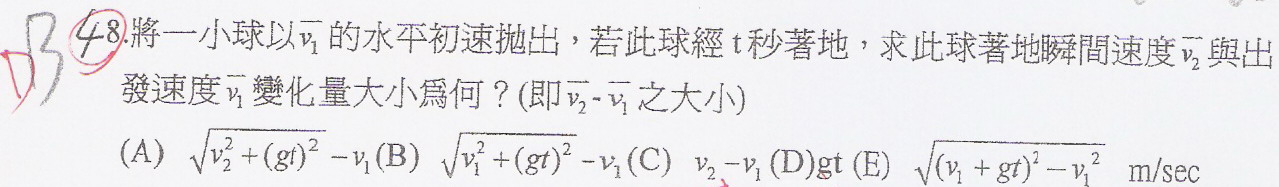 B
48.將一小球以v̅₁的水平初速拋出，若此球經t秒著地，求此球著地瞬間速度v̅₂與出
發速度v̅₁變化量大小為何？(即v̅₂-v̅₁之大小)
(A) √(v₂²+(gt)²) -v₁(B) √(v₁²+(gt)²) -v₁(C) v₂-v₁(D)gt (E) √((v₁+gt)²-v₁²) m/sec